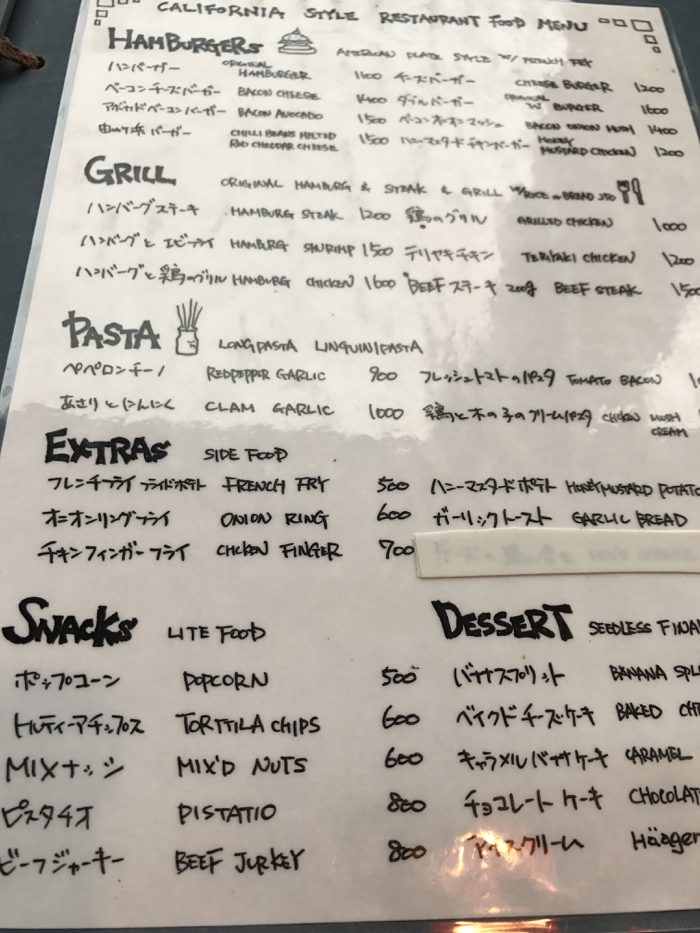 CALIFORNIA STYLE RESTAURANT FOOD MENU
HAMBURGERS AMERICAN PLATE STYLE W/ FRENCH FRY
ハンバーガー ORIGINAL HAMBURGER 1100 チーズバーガー CHEESE BURGER 1200
ベーコンチーズバーガー BACON CHEESE 1400 ダブルバーガー ORIGINAL W BURGER 1600
アボカドベーコンバーガー BACON AVOCADO 1500 ベーコンオニオンマッシュ BACON ONION MUSH 1400
由比ヶ浜バーガー CHILLI BEANS MELTED RED CHEDDAR CHEESE 1500 ハニーマスタードチキンバーガー HONEY MUSTARD CHICKEN 1200
GRILL ORIGINAL HAMBURG & STEAK & GRILL W/RICE or BREAD 250
ハンバーグステーキ HAMBURG STEAK 1200 鶏のグリル GRILLED CHICKEN 1000
ハンバーグとエビフライ HAMBURG SHURIMP 1500 テリヤキチキン TERIYAKI CHICKEN 1200
ハンバーグと鶏のグリル HAMBURG CHICKEN 1600 BEEFステーキ 200g BEEF STEAK 150
PASTA LONGPASTA LINGUINIPASTA
ペペロンチーノ REDPEPPER GARLIC 900 フレッシュトマトのパスタ TOMATO BACON
あさりとにんにく CLAM GARLIC 1000 鶏と木の子のクリームパスタ CHICKEN MUSH CREAM
EXTRAS SIDE FOOD
フレンチフライ フライドポテト FRENCH FRY 500 ハニーマスタードポテト HONEY MUSTARD POTATO
オニオンリングフライ ONION RING 600 ガーリックトースト GARLIC BREAD
チキンフィンガーフライ CHICKEN FINGER 700
SNACKS LITE FOOD
ポップコーン POPCORN 500
トルティーアチップス TORTTILA CHIPS 600
MIXナッツ MIX'D NUTS 600
ピスタチオ PISTATIO 800
ビーフジャーキー BEEF JURKEY 800
DESSERT SEEDLESS FINA
バナナスプリット BANANA SPL
ベイクドチーズケーキ BAKED CHE
キャラメルバナナケーキ CARAMEL
チョコレートケーキ CHOCOLAT
アイスクリーム Häagen